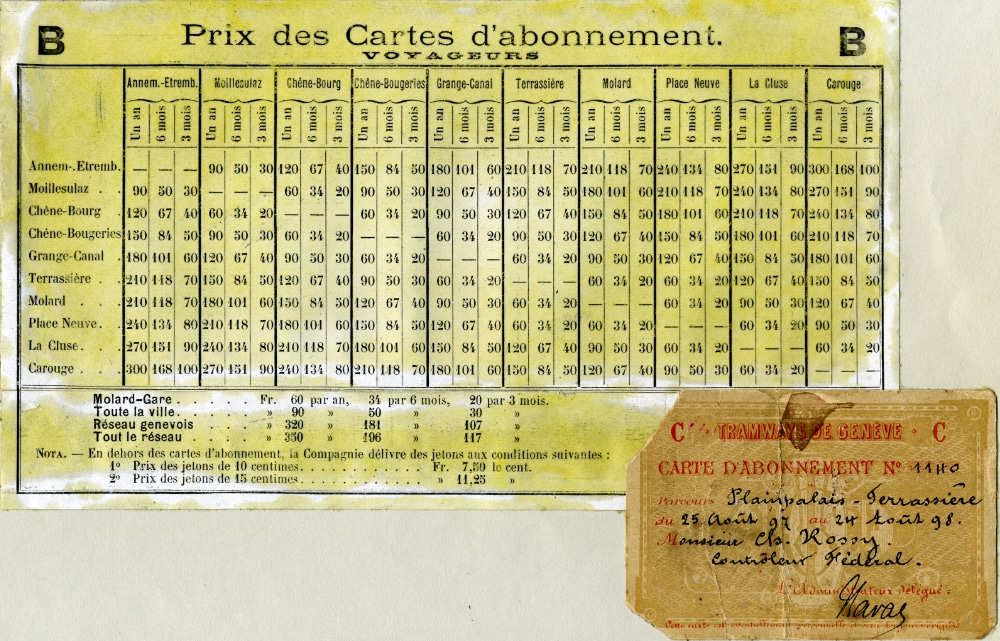 B Prix des Cartes d'abonnement. B
VOYAGEURS
Annem.-Etremb. Moillesulaz Chêne-Bourg Chêne-Bougeries Grange-Canal Terrassière Molard Place Neuve La Cluse Carouge
Un an 6 mois 3 mois Un an 6 mois 3 mois Un an 6 mois 3 mois Un an 6 mois 3 mois Un an 6 mois 3 mois Un an 6 mois 3 mois Un an 6 mois 3 mois Un an 6 mois 3 mois Un an 6 mois 3 mois Un an 6 mois 3 mois
Annem.-Etremb. — — — 90 50 30 120 67 40 150 84 50 180 101 60 210 118 70 210 118 70 240 134 80 270 151 90 300 168 100
Moillesulaz . . 90 50 30 — — — 60 34 20 90 50 30 120 67 40 150 84 50 180 101 60 210 118 70 240 134 80 270 151 90
Chêne-Bourg . 120 67 40 60 34 20 — — — 60 34 20 90 50 30 120 67 40 150 84 50 180 101 60 210 118 70 240 134 80
Chêne-Bougeries 150 84 50 90 50 30 60 34 20 — — — 60 34 20 90 50 30 120 67 40 150 84 50 180 101 60 210 118 70
Grange-Canal . 180 101 60 120 67 40 90 50 30 60 34 20 — — — 60 34 20 90 50 30 120 67 40 150 84 50 180 101 60
Terrassière . . 210 118 70 150 84 50 120 67 40 90 50 30 60 34 20 — — — 60 34 20 60 34 20 120 67 40 150 84 50
Molard . . . 210 118 70 180 101 60 150 84 50 120 67 40 90 50 30 60 34 20 — — — 60 34 20 90 50 30 120 67 40
Place Neuve. . 240 134 80 210 118 70 180 101 60 150 84 50 120 67 40 60 34 20 60 34 20 — — — 60 34 20 90 50 30
La Cluse. . . 270 151 90 240 134 80 210 118 70 180 101 60 150 84 50 120 67 40 90 50 30 60 34 20 — — — 60 34 20
Carouge . . . 300 168 100 270 151 90 240 134 80 210 118 70 180 101 60 150 84 50 120 67 40 90 50 30 60 34 20 — — —
Molard-Gare . . . . . Fr. 60 par an, 34 par 6 mois, 20 par 3 mois.
Toute la ville. . . . . » 90 » 50 » 30 »
Réseau genevois . . . . » 320 » 181 » 107 »
Tout le réseau . . . . » 350 » 196 » 117 »
NOTA. — En dehors des cartes d'abonnement, la Compagnie délivre des jetons aux conditions suivantes :
1º Prix des jetons de 10 centimes. . . . . . . . . . . . Fr. 7,50 le cent.
2º Prix des jetons de 15 centimes. . . . . . . . . . . . » 11,25 »
Cie TRAMWAYS DE GENÈVE · C
CARTE D'ABONNEMENT Nº 1140
Parcours Plainpalais - Terrassière
du 25 Août 97 au 24 Août 98.
Monsieur Ch. Rossy.
Contrôleur Fédéral.
L'Administrateur délégué :